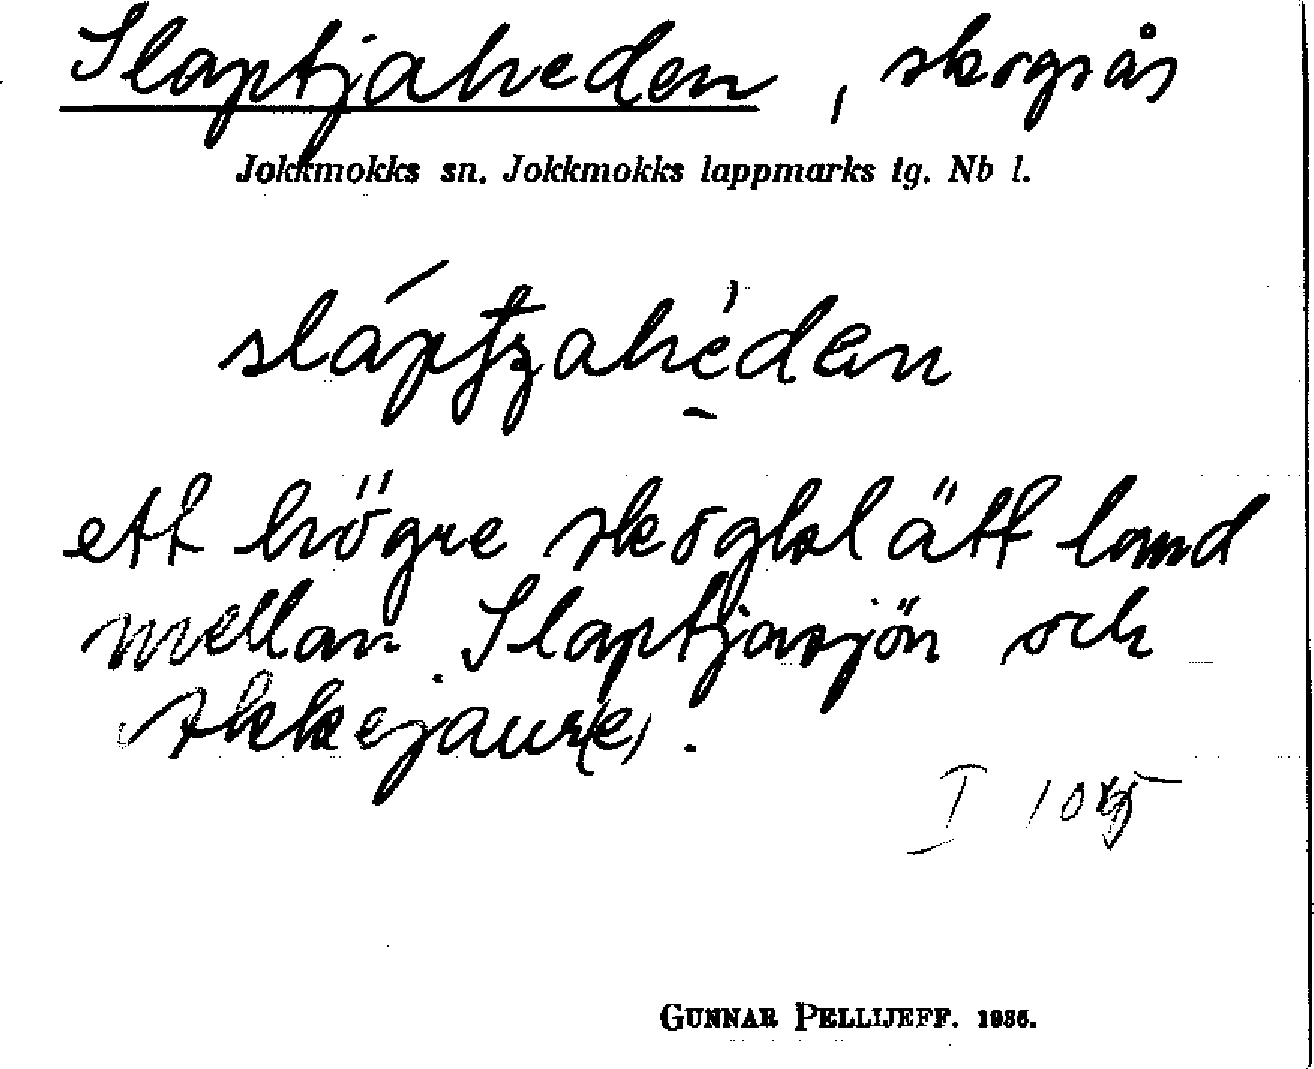 Slaptjaheden, skogsås
Jokkmokks sn. Jokkmokks lappmarks tg. Nb l.
ett högre skoglslätt land
mellan Slaptjasjön och
Akkejaur(e).
I 10
GUNNAR PELLIJEFF. 1936.